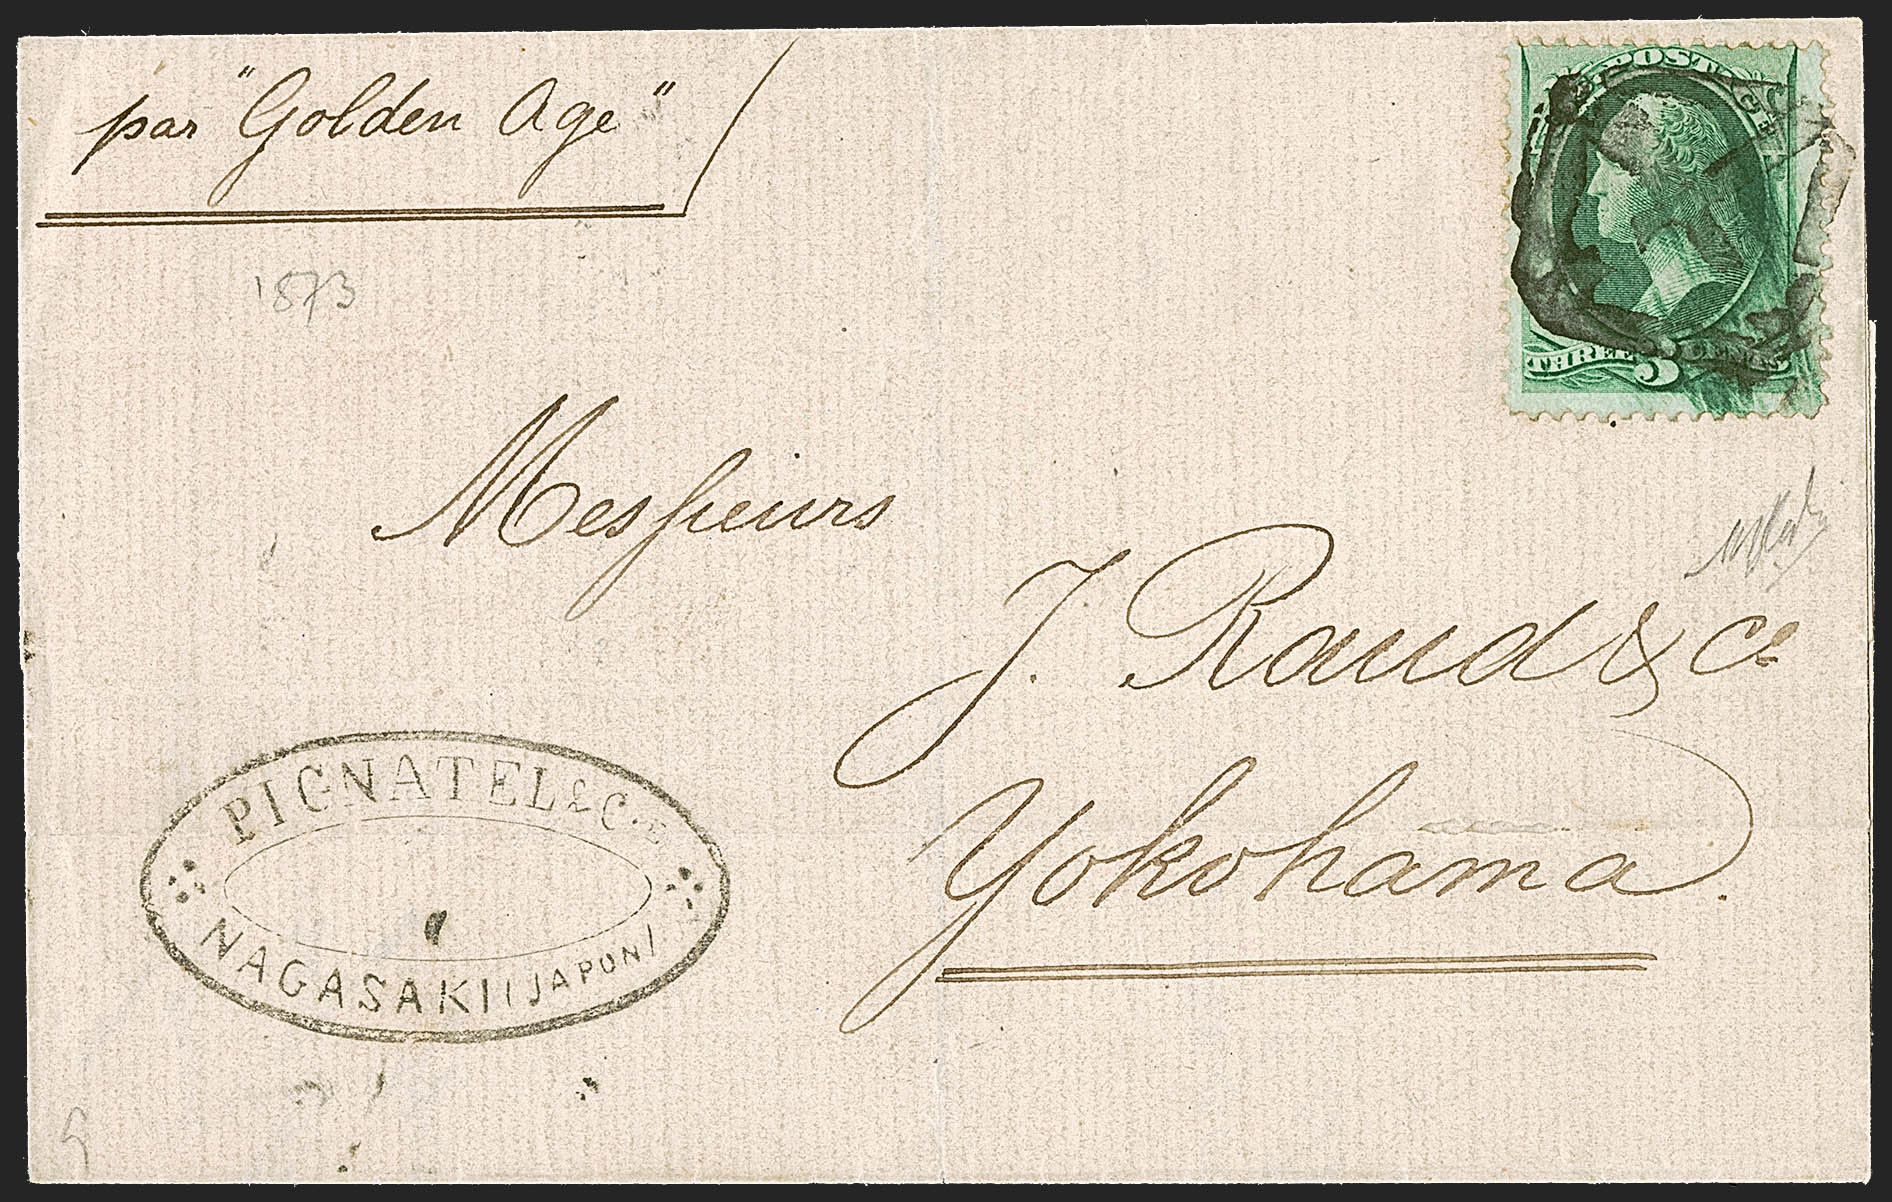 par "Golden Age"
POSTAGE
THREE 3 CENTS
1873
Messieurs
J. Raud & Ce
Yokohama.
PIGNATEL & Cie
NAGASAKI (JAPON)